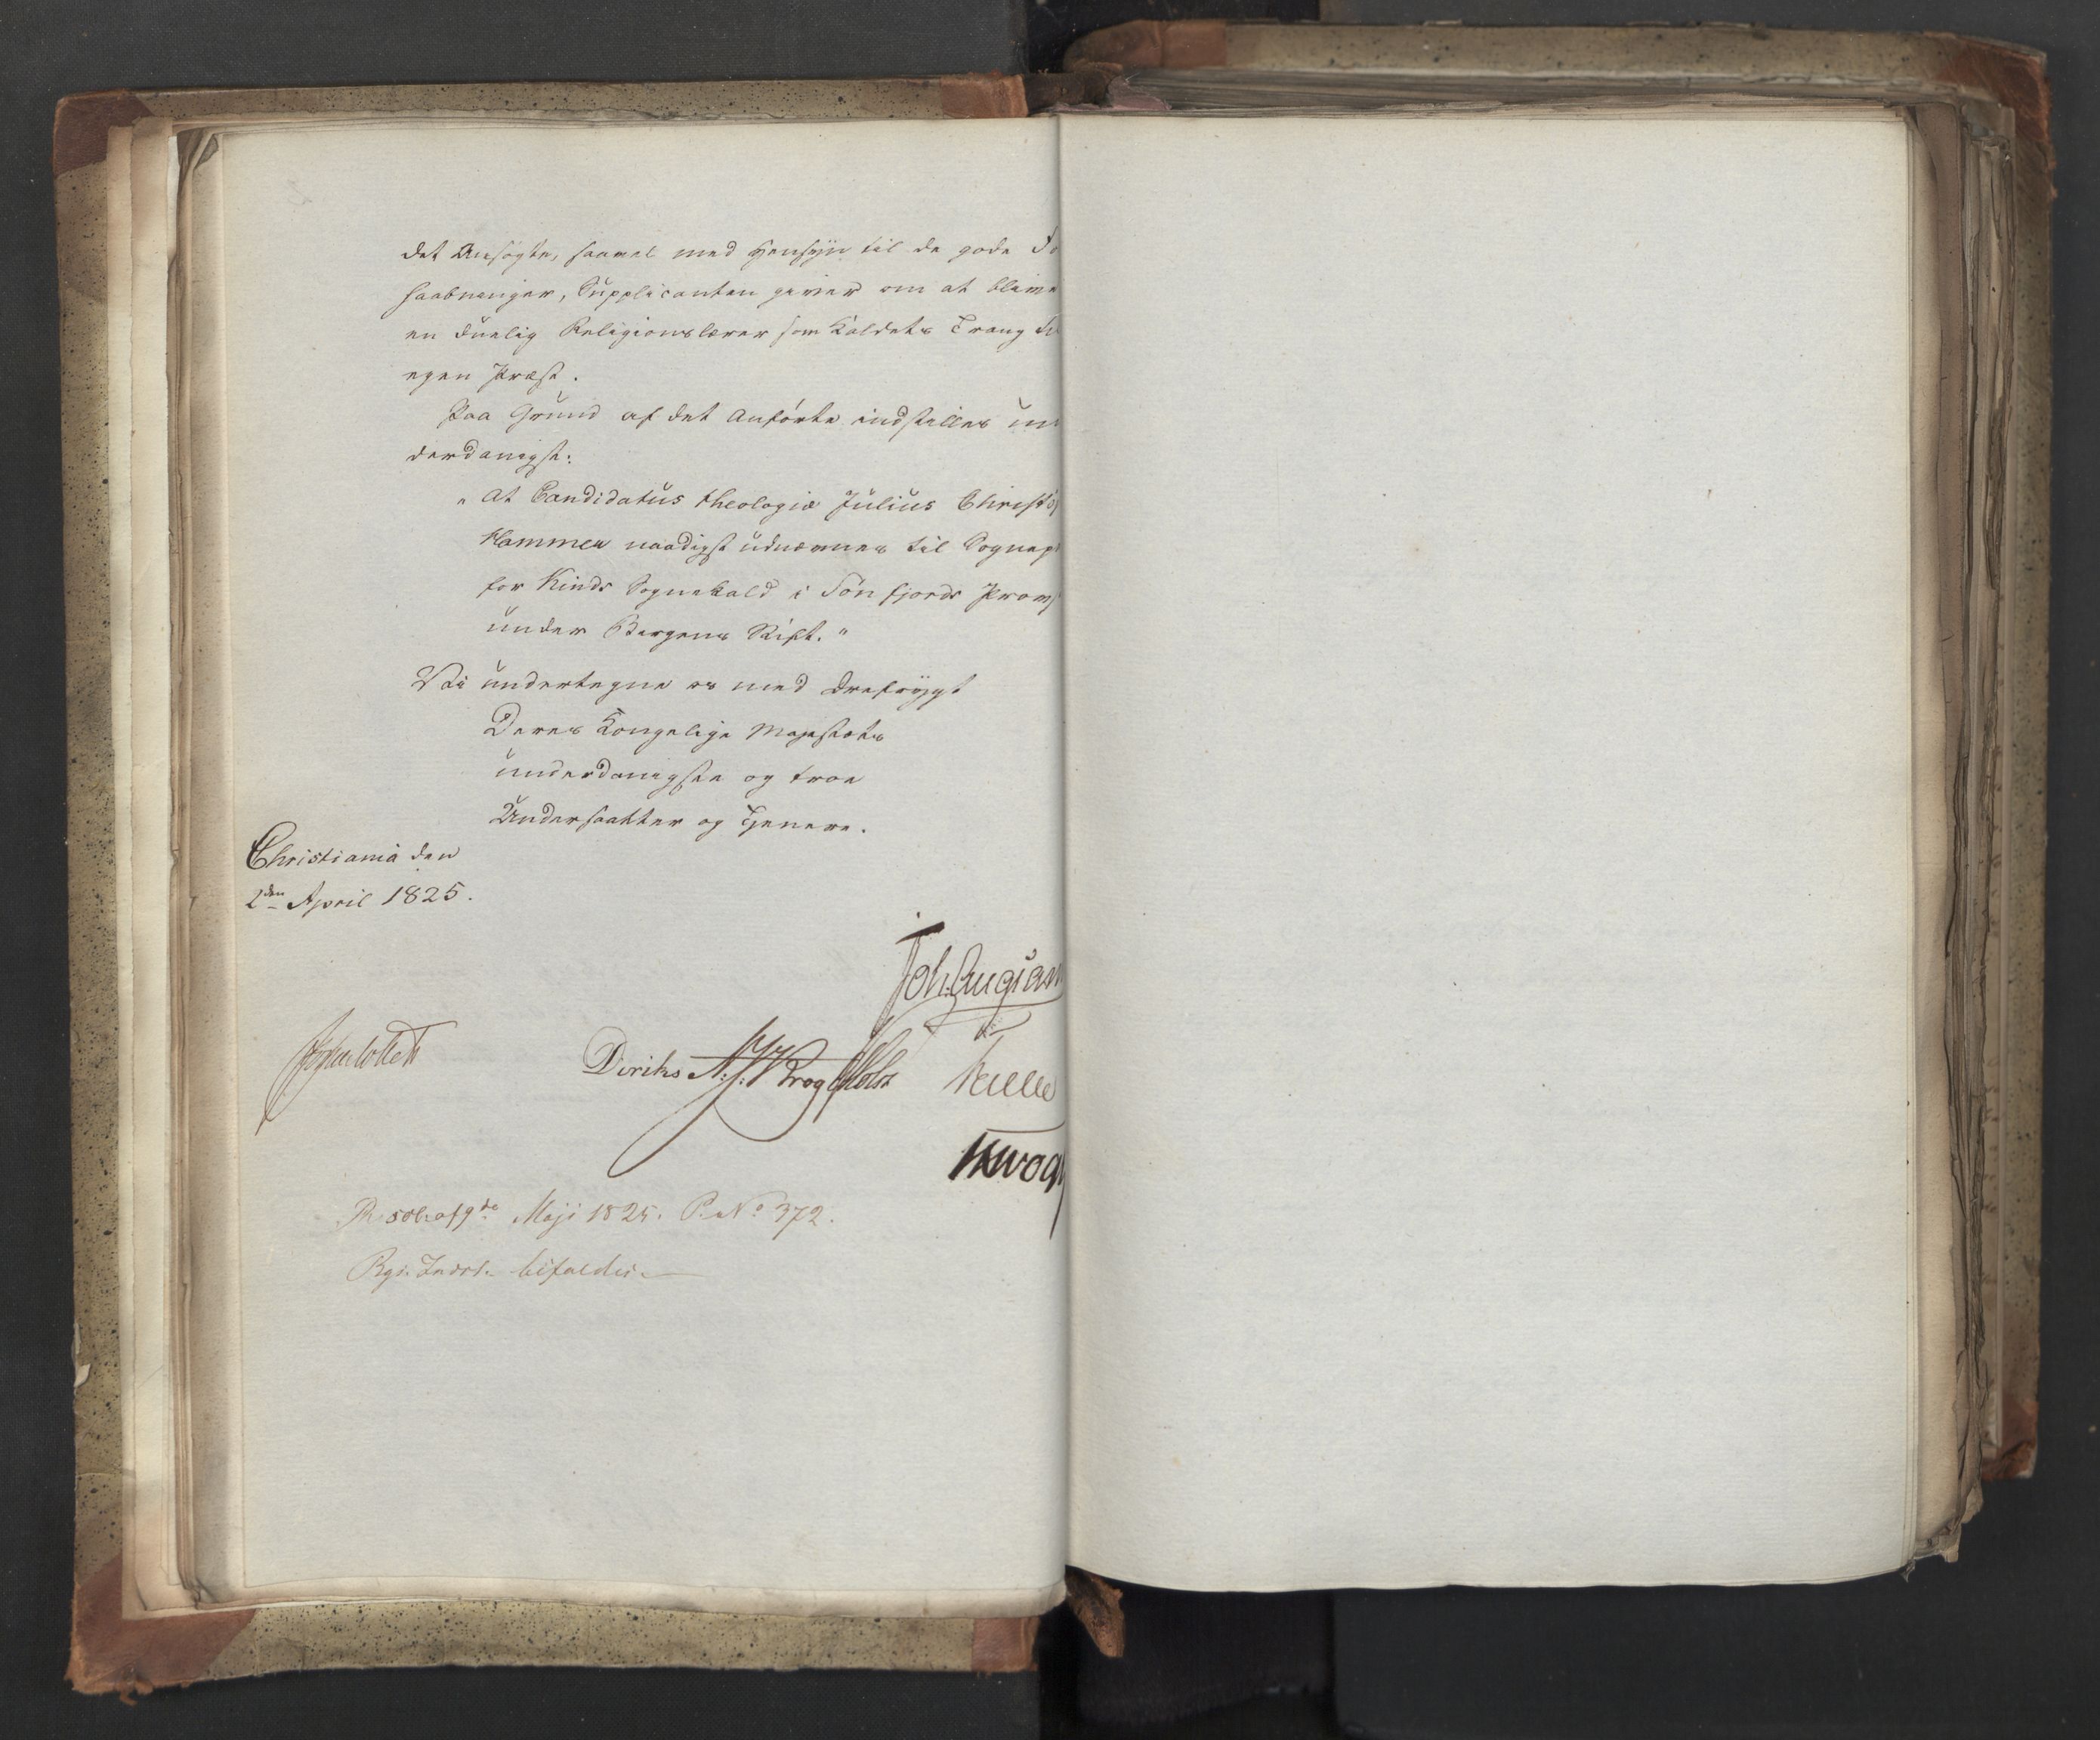 det Ansøgte, saavel med Hensyn til de gode Fo
haabninger, Supplicanten giver om at blive
en duelig Religionslærer som Kaldets Trang til
egen Præst.
Paa Grund af det Anførte indstilles un
derdanigst:
"At Candidatus theologiæ Julius Christ
Hammer naadigst udnævnes til Sognepr
for Kinds Sognekald i Søndfjords Prov
under Bergens Stift."
Vi undertegne os med Ærefrygt
Deres Kongelige Majestæts
underdanigste og troe
Undersaatter og Tjenere.
Christiania den
2den April 1825.
Joh. Aug. San
JCollett Diriks A. Krog Holst
Resol. af 9de Maji 1825. P. No 372.
Rgs. Indst. bifaldes.